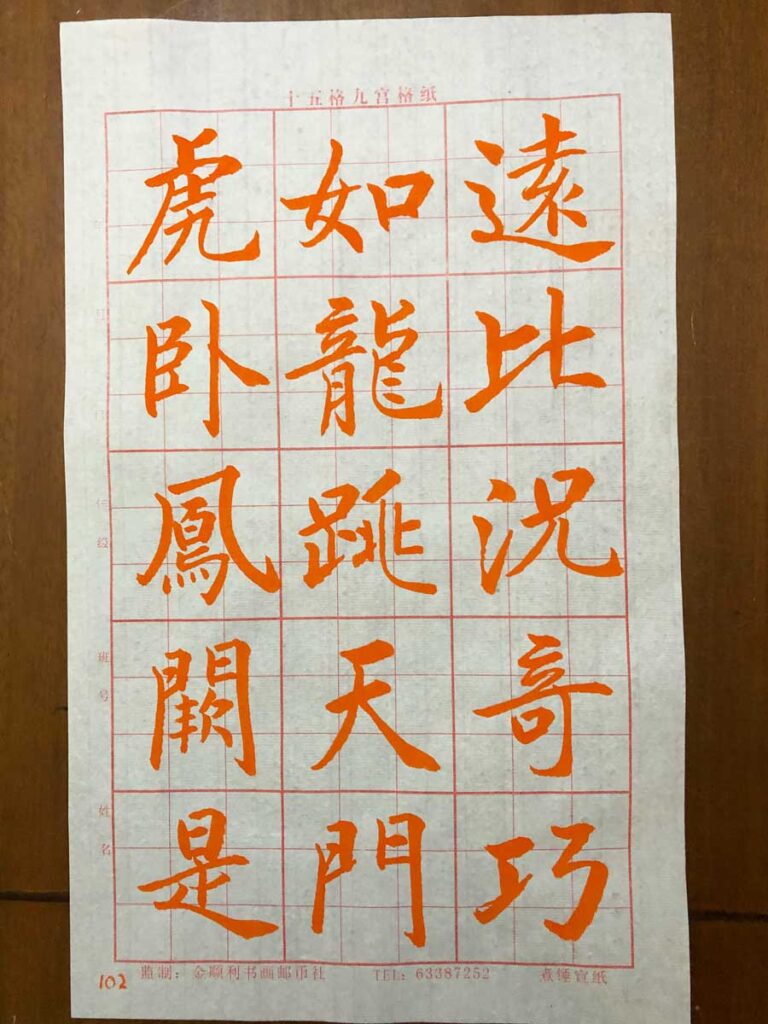 十五格九宫格纸
遠比況奇巧
如龍跳天門
虎卧鳳闕是
班号
姓名
102
监制：金顺利书画邮币社 TEL：63387252 点锤宣纸